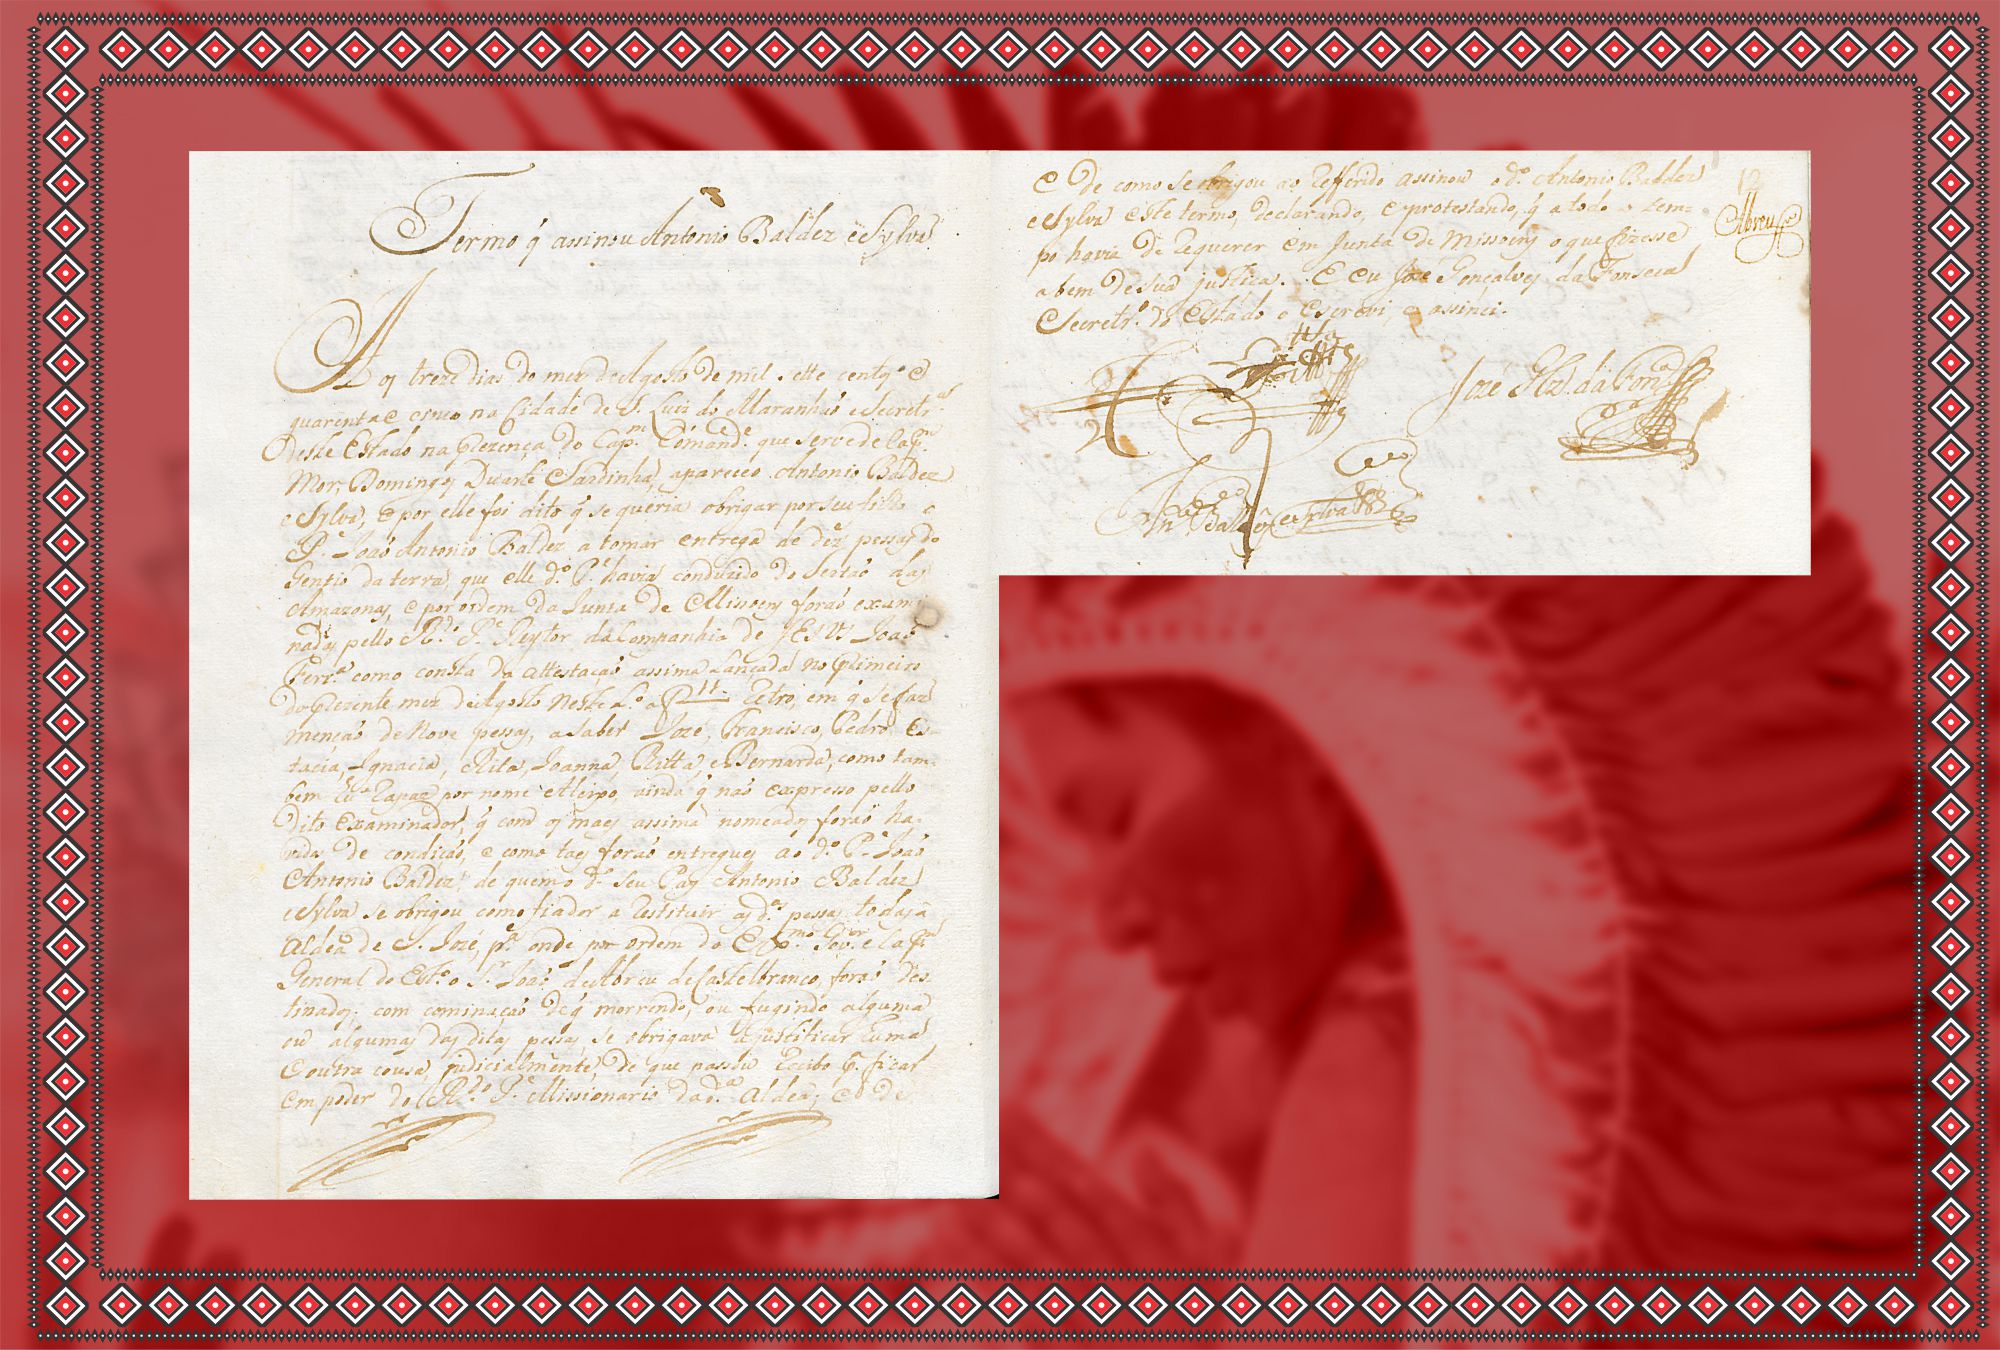 Termo q̃ assinou Antonio Baldez e Sylva
Aos treze dias do mez de Agosto de mil sette centos e
quarenta e cinco na Cidade de S. Luiz do Maranhaõ e Secretr.ᵃ
deste Estado na prezença do Cap.ᵐ Comand.ᵉ que serve de Cap.ᵐ
Mor, Domingos Duarte Sardinha, apareceo Antonio Baldez
e Sylva, e por elle foi dito q̃ se queria obrigar por seu filho o
P.ᵉ Joaõ Antonio Baldez a tomar entrega de dez pessas do
Gentio da terra, que elle d.º P.ᵉ havia conduzido do Sertaõ das
Amazonas, e por ordem da Junta de Missoens foraõ exami
nadas pello R.ᵈᵒ P.ᵉ Reytor da Companhia de JESVS Joaõ
Ferr.ᵃ como consta da attestaçaõ assima lançada no primeiro
do prezente mez de Agosto neste L.º a f 11 retro, em q̃ se faz
mençaõ de Nove pessas, a saber Jozé, Francisco, Pedro, Es-
tacia, Ignacia, Rita, Joanna, Ritta e Bernarda, como tam-
bem hũ rapaz por nome Merpó, ainda q̃ naõ expresso pello
dito examinador, q̃ com os mais assima nomeados foraõ ha-
vidos de condiçaõ, e como taes foraõ entregues ao d.º P.ᵉ Joaõ
Antonio Baldez, de quem o d.º seu Pay Antonio Baldez
e Sylva se obrigou como fiador a restituir as d.ᵃˢ pessas todas á
Aldea de S. Jozé, p.ᵃ onde por ordem do Ex.ᵐᵒ Gov.ᵒʳ e Cap.ᵐ
General do Est.º o S.ʳ Joaõ de Abreu de Castelbranco, foraõ des
tinados, com cominaçaõ de q̃ morrendo, ou fugindo alguma
ou algumas das ditas pessas se obrigava a justificar huma
e outra cousa, judicialmente, de que passou Recibo p.ᵃ ficar
em poder do R.ᵈᵒ P.ᵉ Missionario da d.ᵃ Aldea; e de
e de como se obrigou ao refferido assinou o d.º Antonio Baldez
e Sylva este termo, declarando, e protestando, q̃ a todo o tem-
po havia de requerer em Junta de Missoens o que fizesse
a bem de sua justiça. E eu Jozé Gonçalves da Fonseca
Secretr.º do Estado o escrevi, e assinei.
12
Abreu
Jozé Glz̃ da Fon.ᶜᵃ
Ant.º Baldez e Sylva